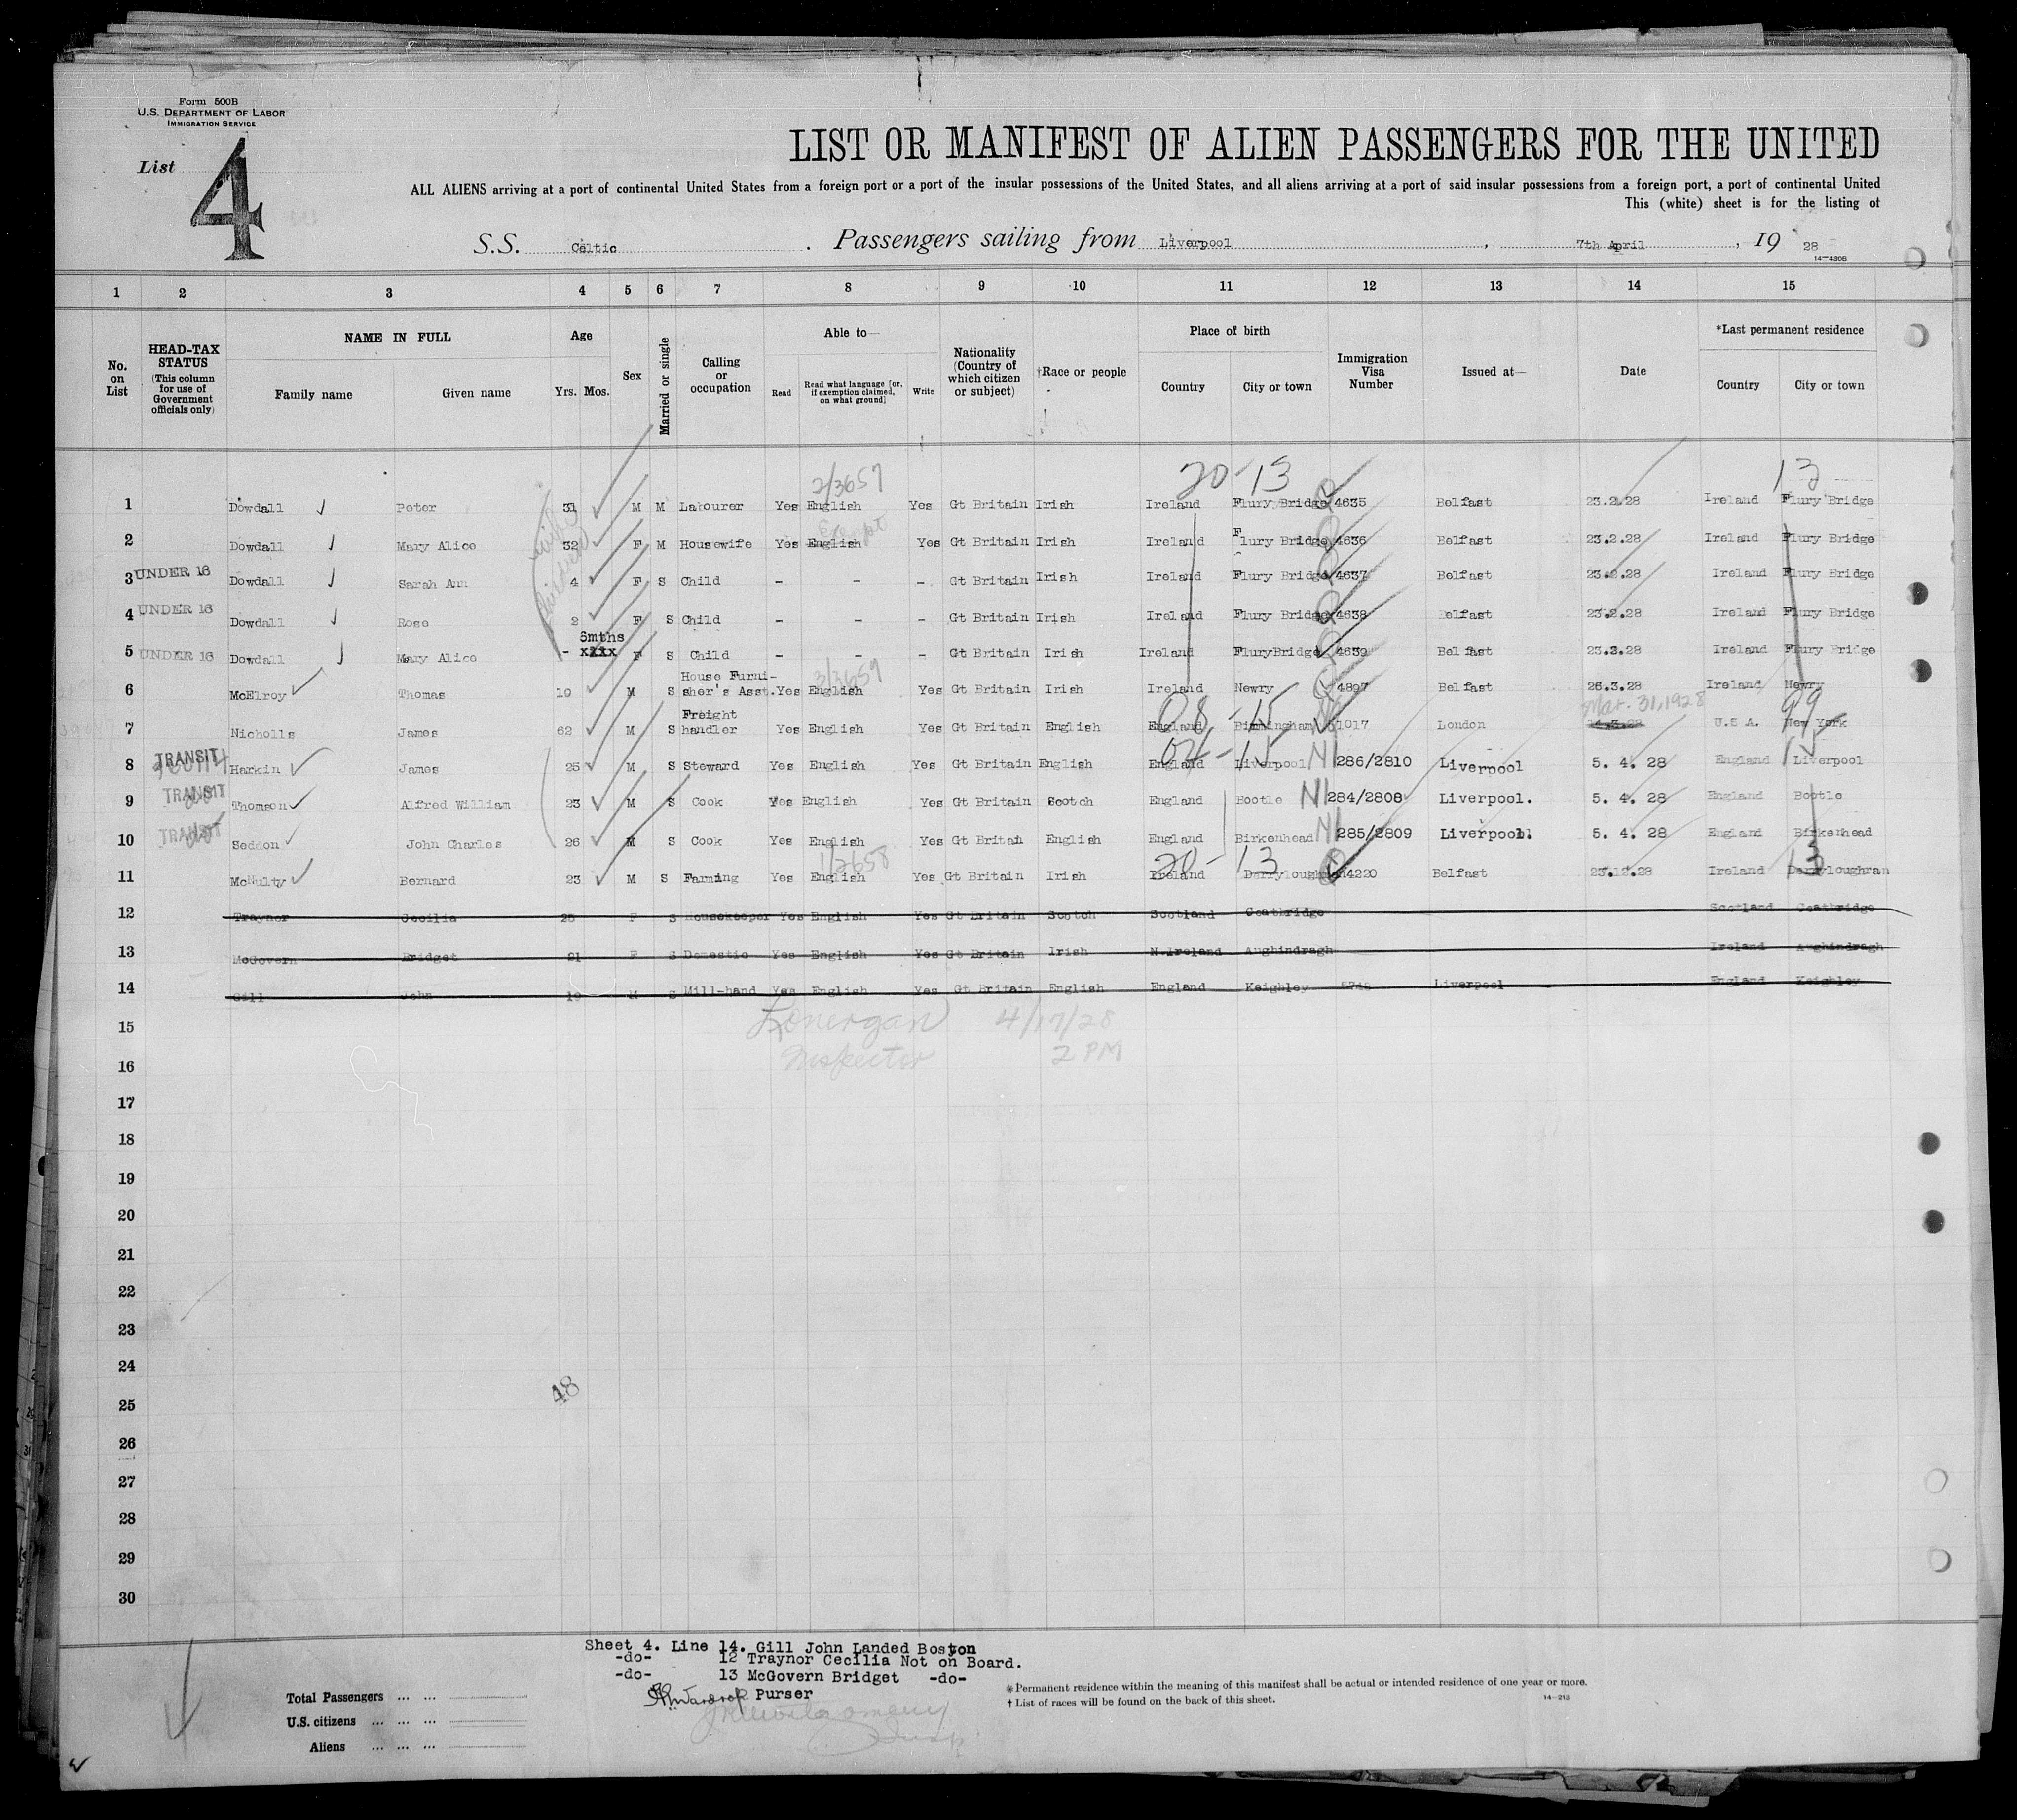 Form 500B
U.S. DEPARTMENT OF LABOR
IMMIGRATION SERVICE
List 4
LIST OR MANIFEST OF ALIEN PASSENGERS FOR THE UNITED
ALL ALIENS arriving at a port of continental United States from a foreign port or a port of the insular possessions of the United States, and all aliens arriving at a port of said insular possessions from a foreign port, a port of continental United
This (white) sheet is for the listing of
S.S. Celtic . Passengers sailing from Liverpool , 7th April , 19 28
14—4306
1 2 3 4 5 6 7 8 9 10 11 12 13 14 15
No. on List
HEAD-TAX STATUS (This column for use of Government officials only)
NAME IN FULL
Family name Given name
Age
Yrs. Mos.
Sex
Married or single
Calling or occupation
Able to—
Read
Read what language [or, if exemption claimed, on what ground]
Write
Nationality (Country of which citizen or subject)
†Race or people
Place of birth
Country City or town
Immigration Visa Number
Issued at—
Date
*Last permanent residence
Country City or town
2/3657 20-13 13
1 Dowdall Peter 31 M M Labourer Yes English Yes Gt Britain Irish Ireland Flury Bridge 4635 Belfast 23.2.28 Ireland Flury Bridge
Exempt
2 Dowdall Mary Alice 32 F M Housewife Yes English Yes Gt Britain Irish Ireland Flury Bridge 4636 Belfast 23.2.28 Ireland Flury Bridge
3 UNDER 16 Dowdall Sarah Ann 4 F S Child - - - Gt Britain Irish Ireland Flury Bridge 4637 Belfast 23.2.28 Ireland Flury Bridge
4 UNDER 16 Dowdall Rose 2 F S Child - - - Gt Britain Irish Ireland Flury Bridge 4638 Belfast 23.2.28 Ireland Flury Bridge
5mths
5 UNDER 16 Dowdall Mary Alice - xxxx F S Child - - - Gt Britain Irish Ireland FluryBridge 4639 Belfast 23.3.28 Ireland Flury Bridge
House Furni- 3/3659
6 McElroy Thomas 19 M S sher's Asst. Yes English Yes Gt Britain Irish Ireland Newry 4897 Belfast 26.3.28 Ireland Newry
Freight 08-15 Mar. 31, 1928 99
7 Nicholls James 62 M S handler Yes English Yes Gt Britain English England Birmingham 1017 London 14.3.28 U.S A. New York
02-15 15
8 TRANSIT Harkin James 25 M S Steward Yes English Yes Gt Britain English England Liverpool NI 286/2810 Liverpool 5. 4. 28 England Liverpool
9 TRANSIT Thomson Alfred William 23 M S Cook Yes English Yes Gt Britain Scotch England Bootle NI 284/2808 Liverpool. 5. 4. 28 England Bootle
10 TRANSIT Seddon John Charles 26 M S Cook Yes English Yes Gt Britain English England Birkenhead NI 285/2809 Liverpool. 5. 4. 28 England Birkenhead
1/3658 20-13 13
11 McNulty Bernard 23 M S Farming Yes English Yes Gt Britain Irish Ireland Derryloughran 4220 Belfast 23.12.28 Ireland Derryloughran
12 Traynor Cecilia 28 F S Housekeeper Yes English Yes Gt Britain Scotch Scotland Coatbridge Scotland Coatbridge
13 McGovern Bridget 21 F S Domestic Yes English Yes Gt Britain Irish N.Ireland Aughindragh Ireland Aughindragh
14 Gill John 19 M S Mill-hand Yes English Yes Gt Britain English England Keighley Liverpool England Keighley
15 Lonergan 4/17/28
16 Inspector 2 PM
17
18
19
20
21
22
23
24
25 48
26
27
28
29
30
Sheet 4. Line 14. Gill John Landed Boston
-do- 12 Traynor Cecilia Not on Board.
-do- 13 McGovern Bridget -do-
Wardrop Purser
Total Passengers ... ...
U.S. citizens ... ... ...
Aliens ... ... ...
*Permanent residence within the meaning of this manifest shall be actual or intended residence of one year or more.
†List of races will be found on the back of this sheet.
14—213